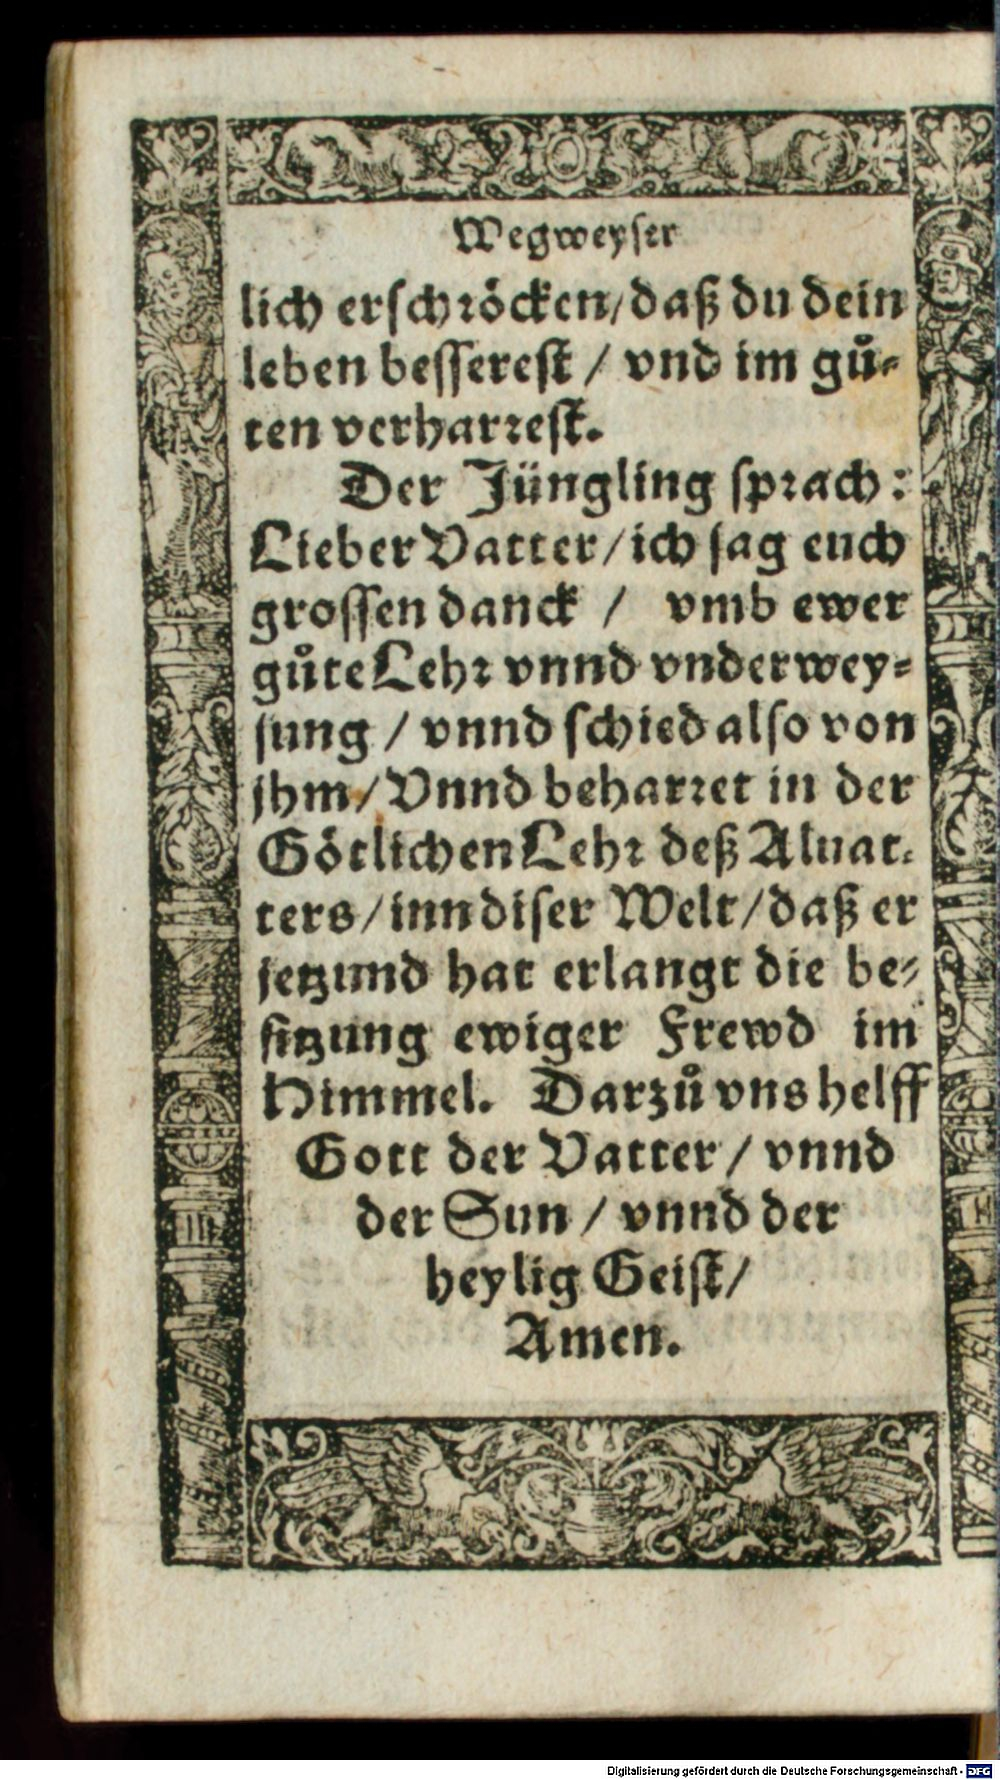 Wegweyser
lich erschröcken/daß du dein
leben besserest / vnd im gů-
ten verharrest.
Der Jüngling sprach:
Lieber Vatter/ich sag euch
grossen danck / vmb ewer
gůte Lehr vnnd vnderwey-
sung / vnnd schied also von
jhm/Vnnd beharret in der
Götlichen Lehr deß Aluat-
ters/inn diser Welt/daß er
jetzund hat erlangt die be-
sitzung ewiger Frewd im
Himmel. Darzů vns helff
Gott der Vatter/ vnnd
der Sun / vnnd der
heylig Geist/
Amen.
Digitalisierung gefördert durch die Deutsche Forschungsgemeinschaft - DFG